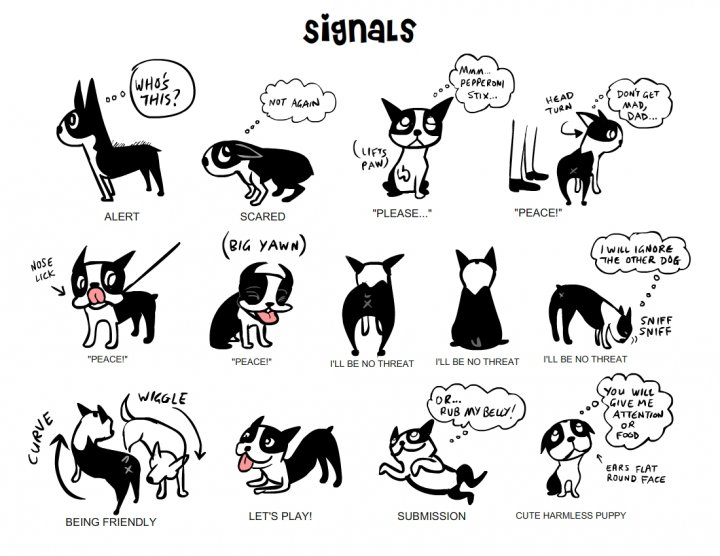 signals
WHO'S
THIS?
ALERT
NOT AGAIN
SCARED
Mmm...
PEPPERONI
STIX...
(LIFTS
PAW)
"PLEASE..."
HEAD
TURN
DON'T GET
MAD,
DAD...
"PEACE!"
NOSE
LICK
"PEACE!"
(BIG YAWN)
"PEACE!"
I'LL BE NO THREAT
I'LL BE NO THREAT
I WILL IGNORE
THE OTHER DOG
SNIFF
SNIFF
I'LL BE NO THREAT
CURVE
WIGGLE
BEING FRIENDLY
LET'S PLAY!
OR...
RUB MY BELLY!
SUBMISSION
YOU WILL
GIVE ME
ATTENTION
OR
FOOD
EARS FLAT
ROUND FACE
CUTE HARMLESS PUPPY